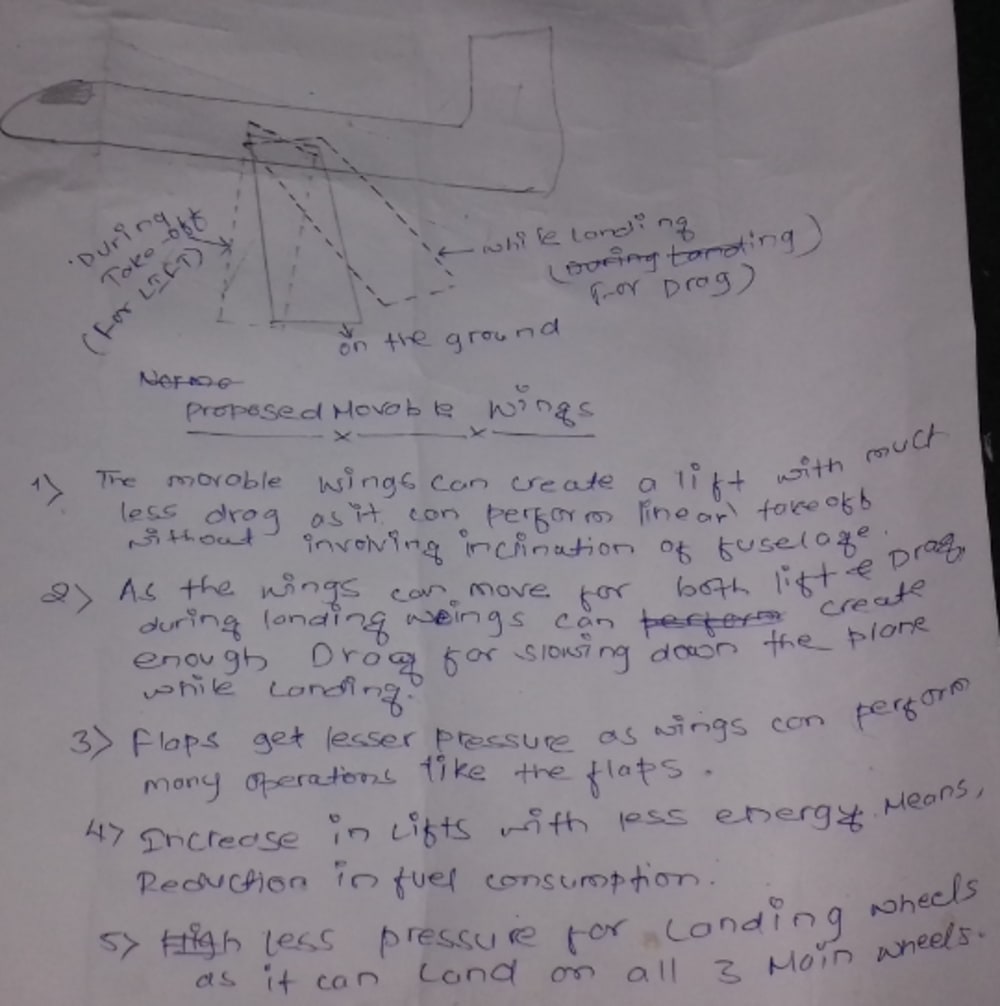 During
Take off
(For LIFT)
while landing
(During landing)
For Drag)
on the ground
Proposed Movable Wings
1) The movable wings can create a lift with much
less drag as it can perform linear takeoff
without involving inclination of fuselage.
2) As the wings can move for both lift & Drag,
during landing weings can perform create
enough Drag for slowing down the plane
while Landing.
3) Flaps get lesser pressure as wings can perform
many operations like the flaps.
4) Increase in Lifts with less energy. Means,
Reduction in fuel consumption.
5) High less pressure for Landing wheels
as it can Land on all 3 Main wheels.